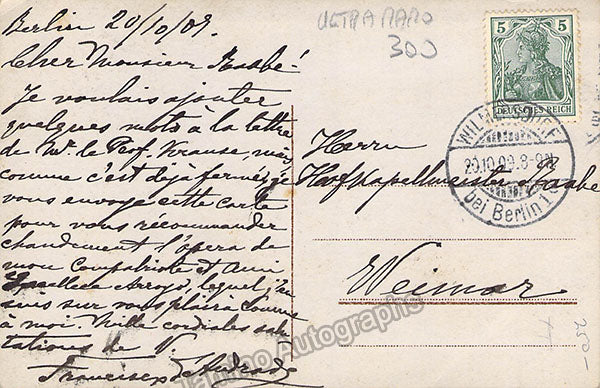 Berlin 20/10/09.
Cher Monsieur Raabé!
Je voulais ajouter
quelques mots à la lettre
de Mr. le Prof. Krause, mais
comme c'est déjà fermée, je
vous envoye cette carte
pour vous récommander
chaudement l'opera de
mon compatriote et ami
Arroyo, lequel, j'en
suis sur vous plaira comme
à moi. Mille cordiales salu
tations de V.
Francisco d'Andrade
ULTRA RARO
300
5 5
DEUTSCHES REICH
WILMERSDORF
20.10.09. 8-9N.
bei Berlin 1
Herrn
Hofkapellmeister Raabe
Weimar
Tamino Autographs